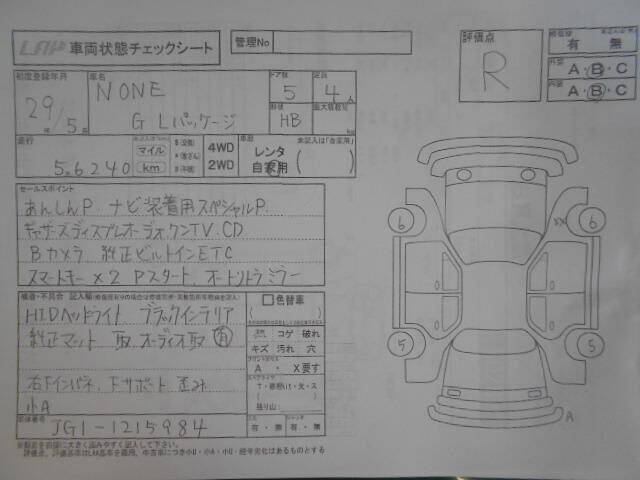 LAA 車両状態チェックシート
管理No
評価点
R
有 無
A・B・C
A・B・C
初度登録年月
29年/5月
車名
NONE
G Lパッケージ
ドア数
5
定員
4人
形状
HB
最大積載量
走行
56240
マイル
km
4WD
2WD
車歴
レンタ
自家用
未記入は「自家用」
セールスポイント
あんしんP. ナビ装着用スペシャルP.
ギャザースディスプレオーディオ.ワンTV.CD
Bカメラ 純正ビルトインETC
スマートキー×2 Pスタート.オートリトラミラー
HIDヘッドライト ブラックインテリア
純正マット 取 オーディオ取 有
右下インパネ、下サポート 歪み
小A
色替車
コゲ 破れ
キズ 汚れ 穴
A ・ X要す
残り山
有・無
有・無
車体番号
JG1-1215984
6
6
5
5
××
A